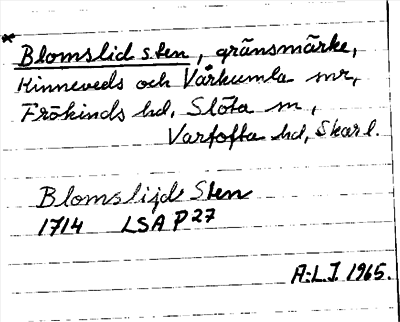 *Blomslid sten, gränsmärke,
Kinneveds och Vårkumla snr,
Frökinds hd, Slöta sn,
Vartofta hd, Skarl.
Blomslijd Sten
1714 LSA P27
A.L.J. 1965.